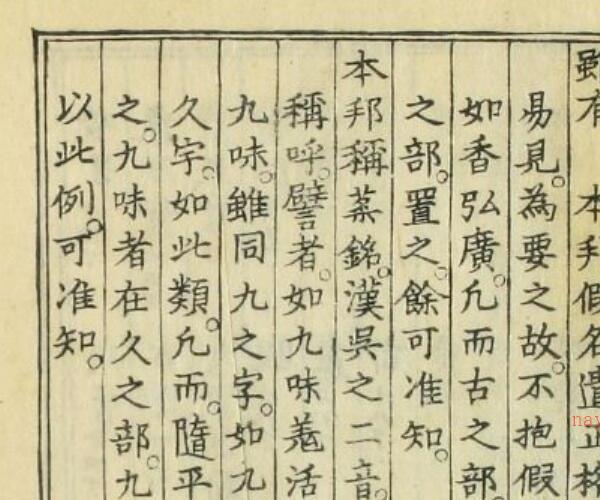 雖有 本邦假名遣正格
易見。為要之故。不抱假
如香弘廣。凢而古之部。
之部。置之。餘可准知。
本邦稱薬銘。漢吳之二音。
稱呼。譬者。如九味羗活
九味。雖同九之字。如九
久字。如此類。凢而。隨平
之。九味者在久之部。九
以此例。可准知。